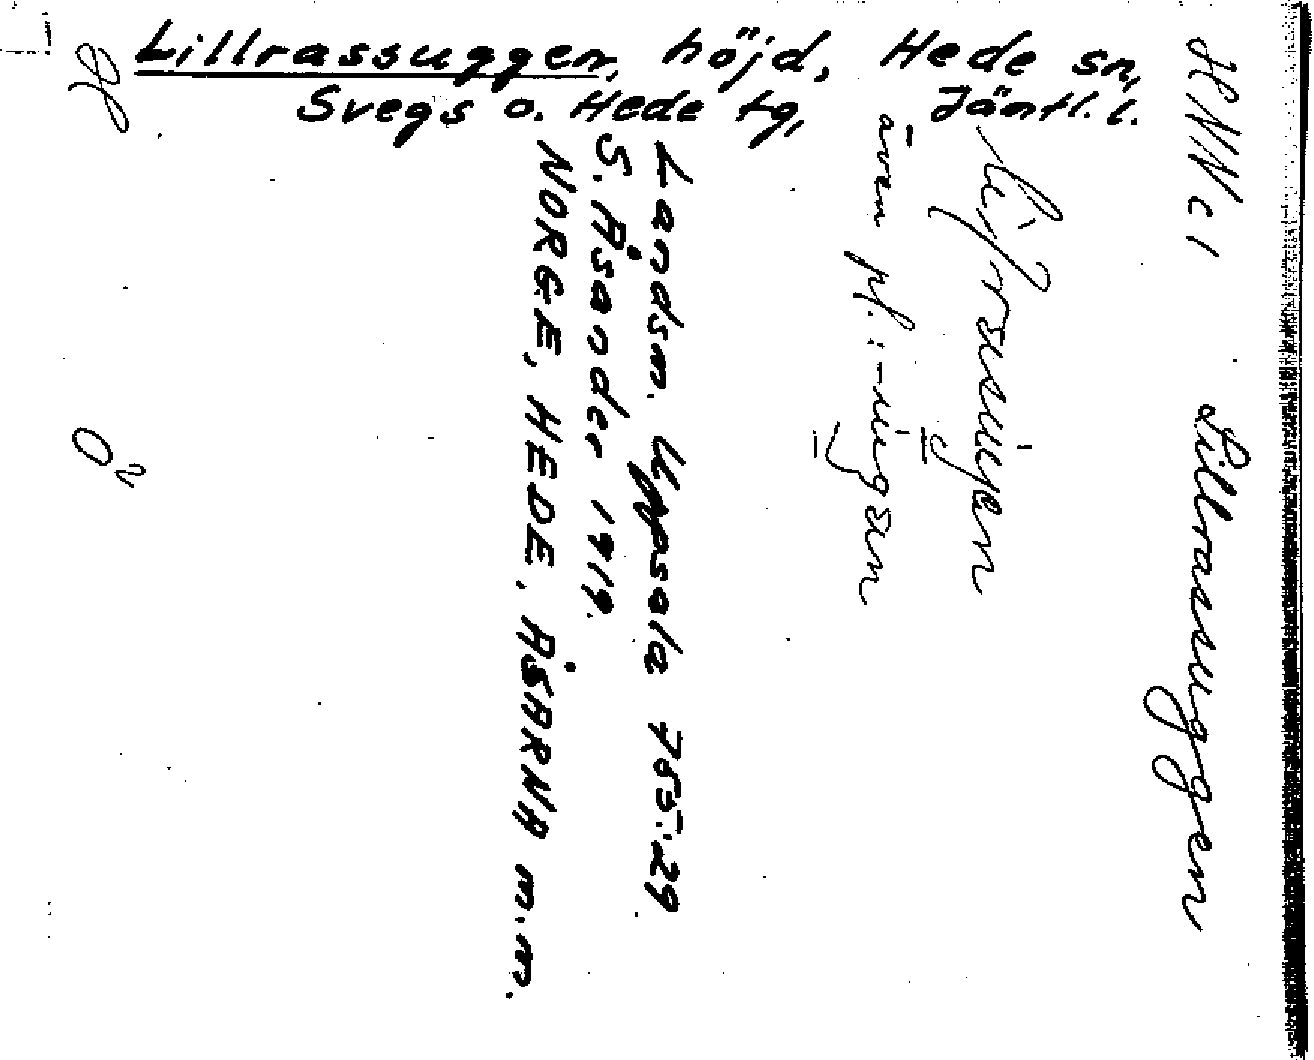 Lillrassuggen, höjd, Hede sn,
Svegs o. Hede tg, Jämtl. l.
HNNc1 Lillrassuggen
även pl.:
Landsm. Uppsala 755:29
S. Åsander 1919.
NORGE, HEDE, ÅSARNA m.m.